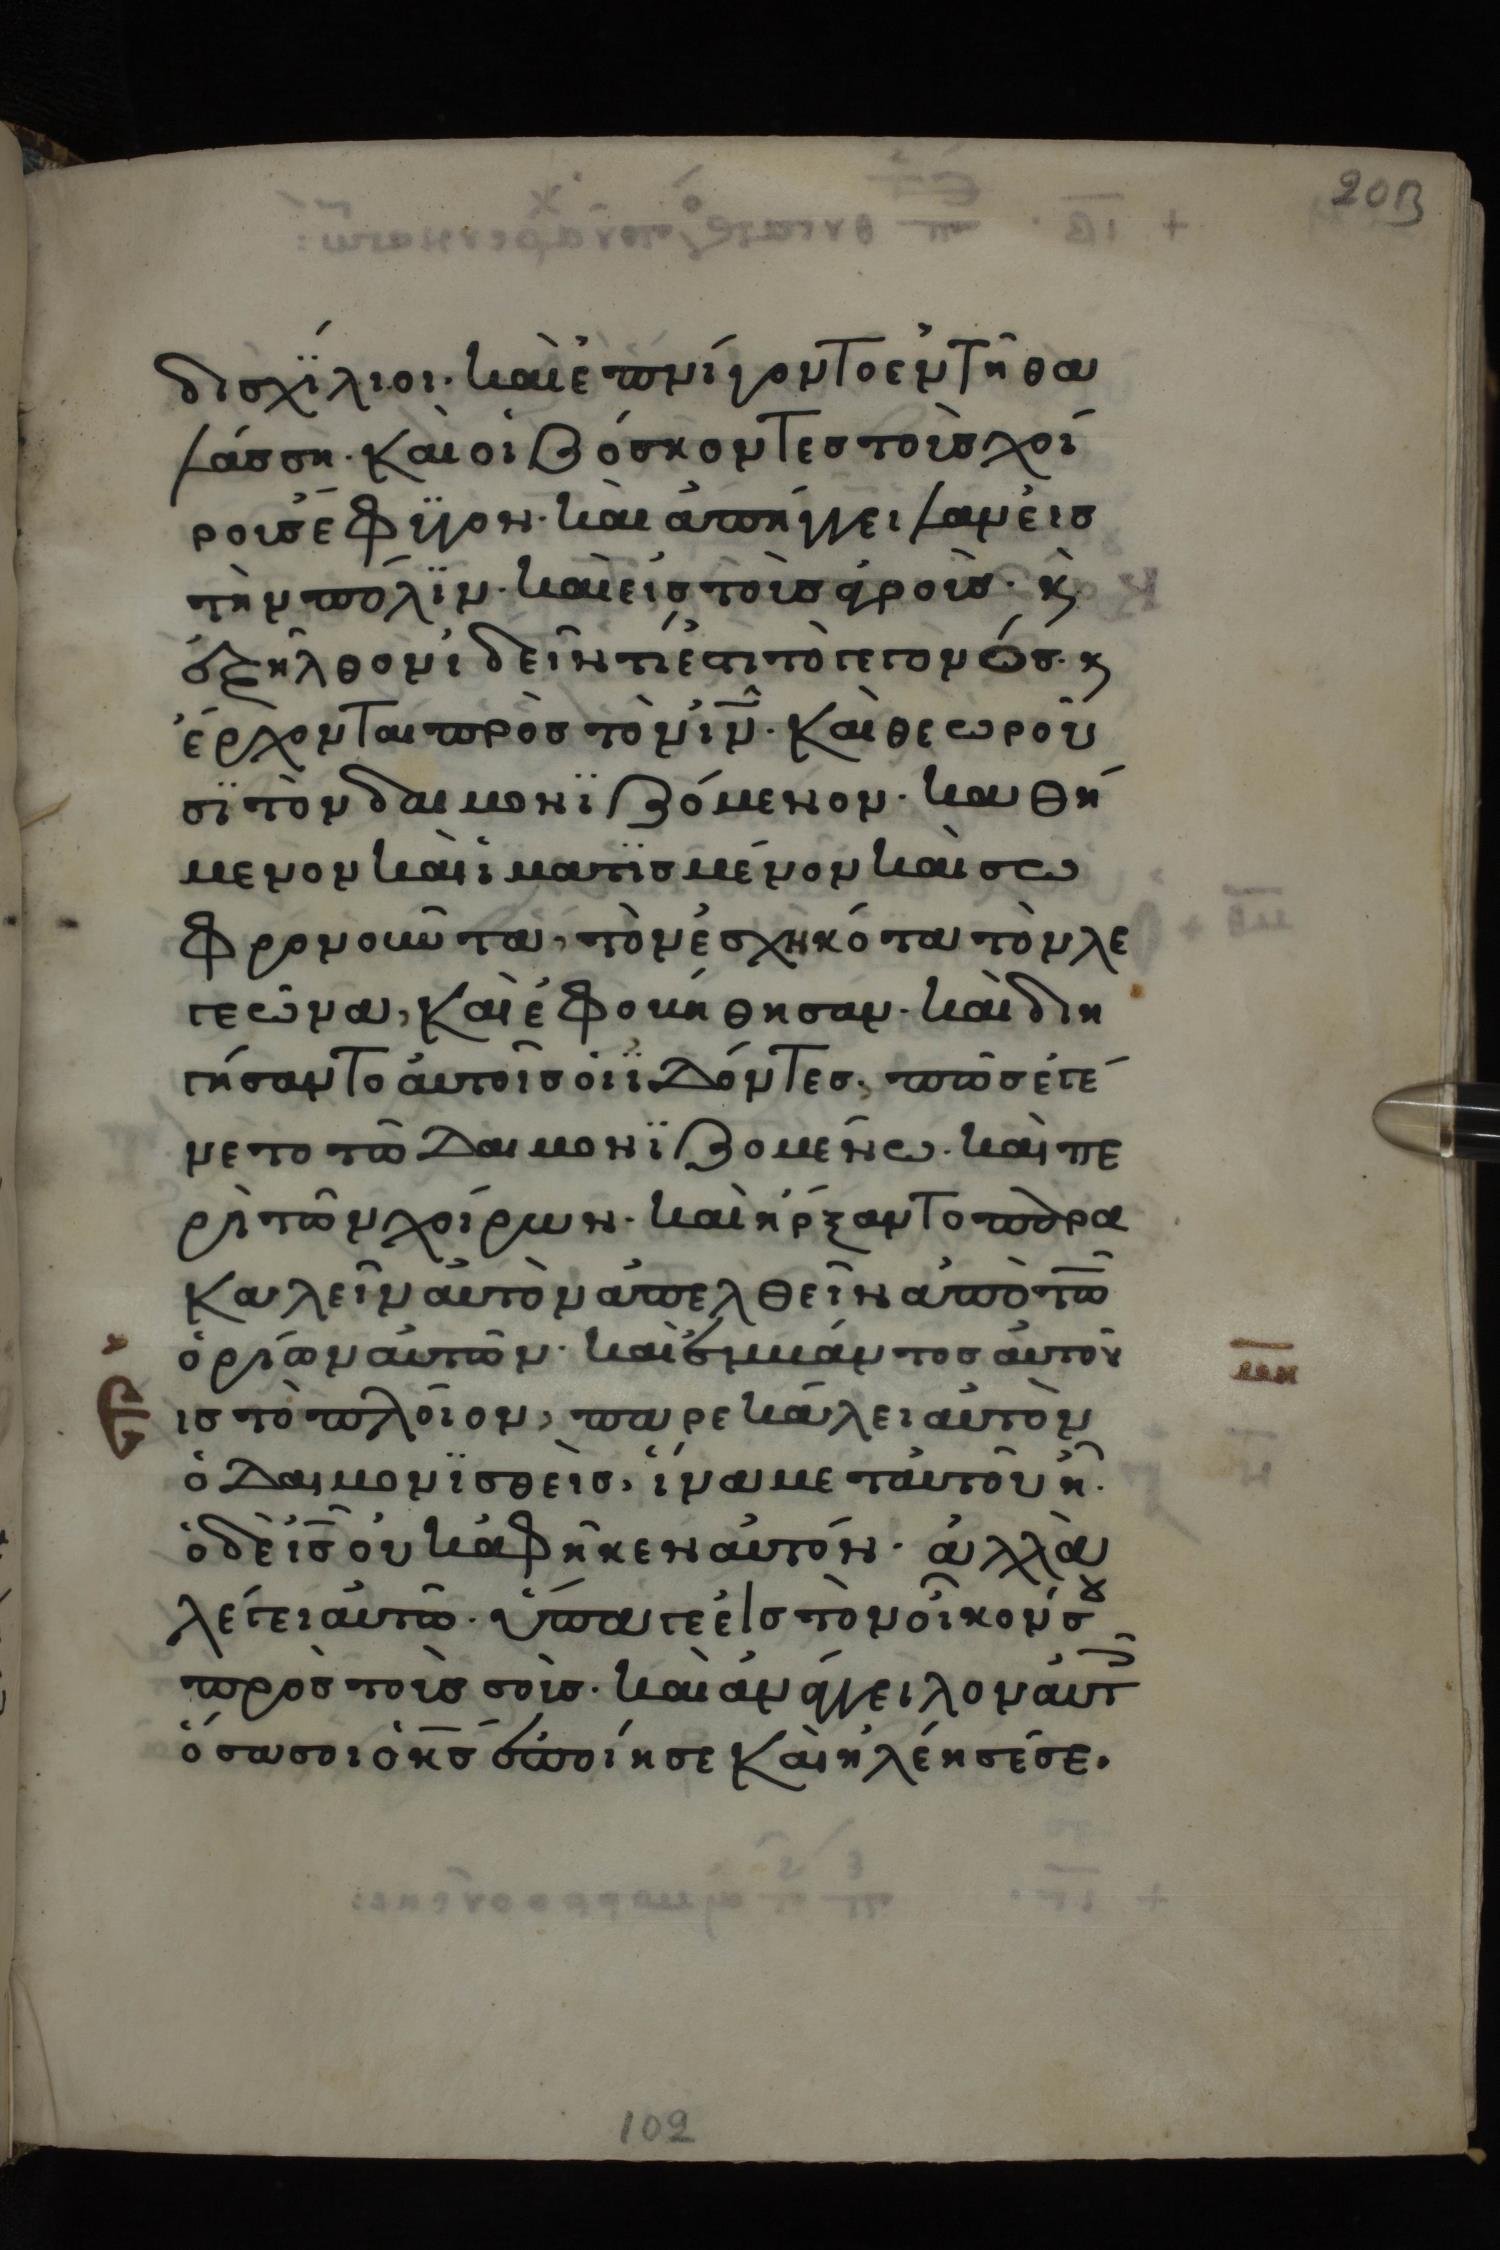 203
δισχίλιοι· καὶ ἐπνίγοντο ἐν τῇ θα
λάσσῃ· καὶ οἱ βόσκοντες τοὺς χοί
ρους ἔφυγον· καὶ ἀπήγγειλαν εἰς
τὴν πόλϊν· καὶ εἰς τοὺς ἀγρούς· κ
ἐξῆλθον ἰδεῖν τί ἐστι τὸ γεγονός· κ
ἔρχονται πρὸς τὸν ιν· καὶ θεωροῦ
σϊ τὸν δαιμονϊζόμενον· καθή
μενον καὶ ἱματϊσμένον καὶ σω
φρονοῦντα, τὸν ἐσχηκότα τὸν λε
γεῶνα, καὶ ἐφοβήθησαν· καὶ διη
γήσαντο αὐτοῖς οἱ ἰδόντες, πῶς ἐγέ
νετο τῶ δαιμονϊζομένω· καὶ πε
ρὶ τῶν χοίρων· καὶ ἤρξαντο παρα
καλεῖν αὐτὸν ἀπελθεῖν ἀπὸ τῶ
ὁρίων αὐτῶν· καὶ ἐμβάντος αὐτοῦ
ις τὸ πλοῖον, παρεκάλει αὐτὸν
ὁ δαιμονϊσθεὶς, ἵνα μετ αὐτοῦ ῆ·
ὁ δὲ ις οὐκ ἀφῆκεν αὐτόν· ἀλλὰ
λέγει αὐτῶ· ὕπαγε εἰς τὸν οἶκόν σου
πρὸς τοὺς σούς· καὶ ἀνάγγειλον αὐτ
ὅσα σοι ὁ κς ἐποίησε καὶ ἠλέησέ σε.
102